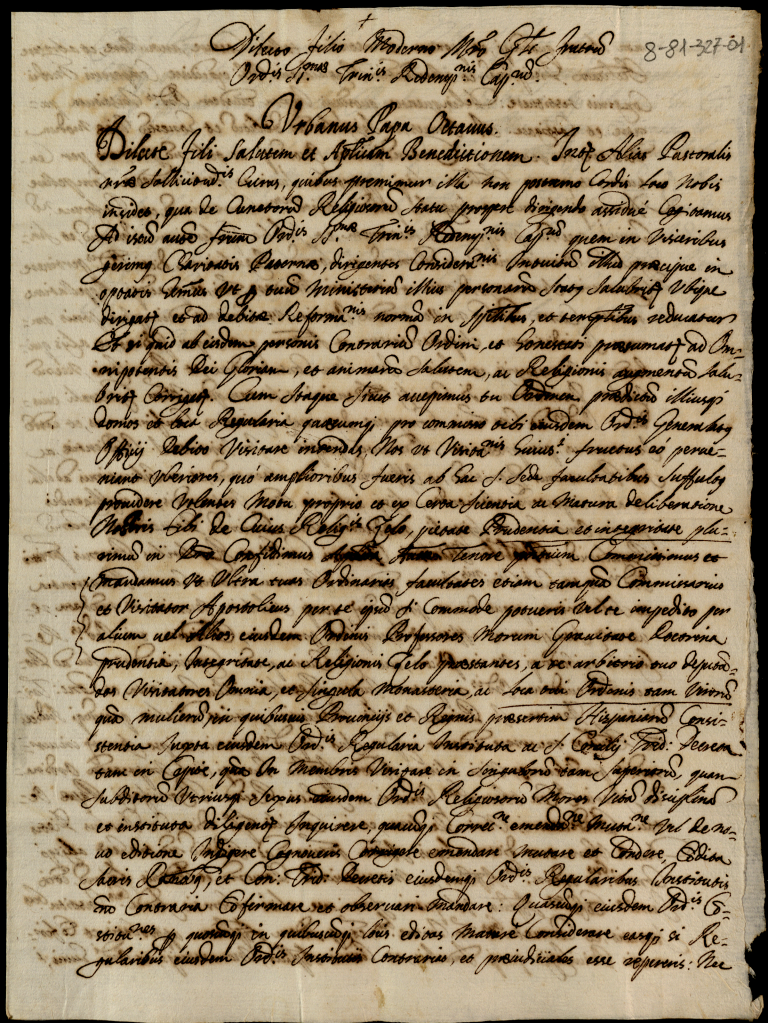 Dilecto filio Moderno Mro Gnli fratrũ
Ord.is S.mae Trin.is Redemp.nis Cap.rũ.
8-81-327-01
Vrbanus Papa Octauus.
Dilecte fili Salutem et Aplicam Benedictionem. Inter Alias Pastoralis
nrae sollicitud.is Curas, quibus premimur illa non postremo Cordis loco Nobis
insidet, qua de Cunctorũ Religiosorũ statu prospere dirigendo assiduè Cogitamus
Ad istũ autẽ frum Ord.is S.mae Trin.is Redemp.nis Cap.rũ quem in Visceribus
gerimq Charitatis Paternae, dirigentes Considerat.nis Intuitũ illud praecipue in
optatis hẽmus Vt p tuũ Ministeriũ illius personarũ statq salubriter Vbique
dirigatr et ad debitã Reforma.nis normã in spũlibus, et temporalibus reducatur
Et si quid ab eisdem personis Contrariũ Ordini, et honestati praesumatr ad Om-
nipotentis Dei Gloriam, et animarũ Salutem, ac Religionis augmentũ salu-
briter Corrigatr. Cum Itaque sicut accepimus tu Ordinem praedictũ illiusq;
domos et loca Regularia quaecunq; pro commisso tibi eiusdem Ord.is Generalatq
Officij debito Visitare intendas, Nos vt Visita.nis huius.i fructus eò perue-
niant vberiores, quò amplioribus fueris ab hac S. Sede facultatibus suffultq
prouidere Volentes Motu proprio et ex Certa scientia ac Matura deliberatione
Nostris tibi de Cuius Relig.is Zelo, pietate Prudentia et integritate plu-
rimũ in Confidimus tenore pñtium Committimus et
mandamus Vt Vltra tuas Ordinarias facultates etiam tamquã Commissarius
et Visitator Apostolicus per te ipsũ si Commode potueris vel te impedito per
alium vel Alios eiusdem Ordinis Professores Morum Grauitate Doctrina
prudentia, Integritate, ac Religionis Zelo praestantes, a te arbitrio tuo deputã-
dos Visitatores Omnia, et singula Monasteria, ac loca tui Ordinis tam Virorũ
quã mulierũ, in quibusuis Prouincijs et Regnis praesertim Hispaniarũ Consi-
stentia Juxta eiusdem Ord.is Regularia Instituta ac S. Concilij Trid: Decreta
tam in Capite, quã In Membris Visitare in singulorũ tam superiorũ, quam
subditorũ Vtriusq; sexus eiusdem Ord.is Religiosorũ Mores Vitã disciplinã
et instituta diligenter Inquirere, quaecũq; Correc.ne emenda.ne Muta.ne Vel de no-
uo editione Indigere Cognoueris Corrigere emendare mutare et Condere, Condita
sacris Canonibq, et Con: Trid: Decretis eiusdemq; Ord.is Regularibus Institutis
nõ Contraria Cõfirmare et obseruari mandare: Quascũq; eiusdem Ord.is Cõ-
stitu.nes p quoscũq; in quibuscũq; locis editas Mature Considerare easq; si Re-
gularibus eiusdem Ord.is Institutis Contrarias, et praeiudiciales esse repereris: Nec